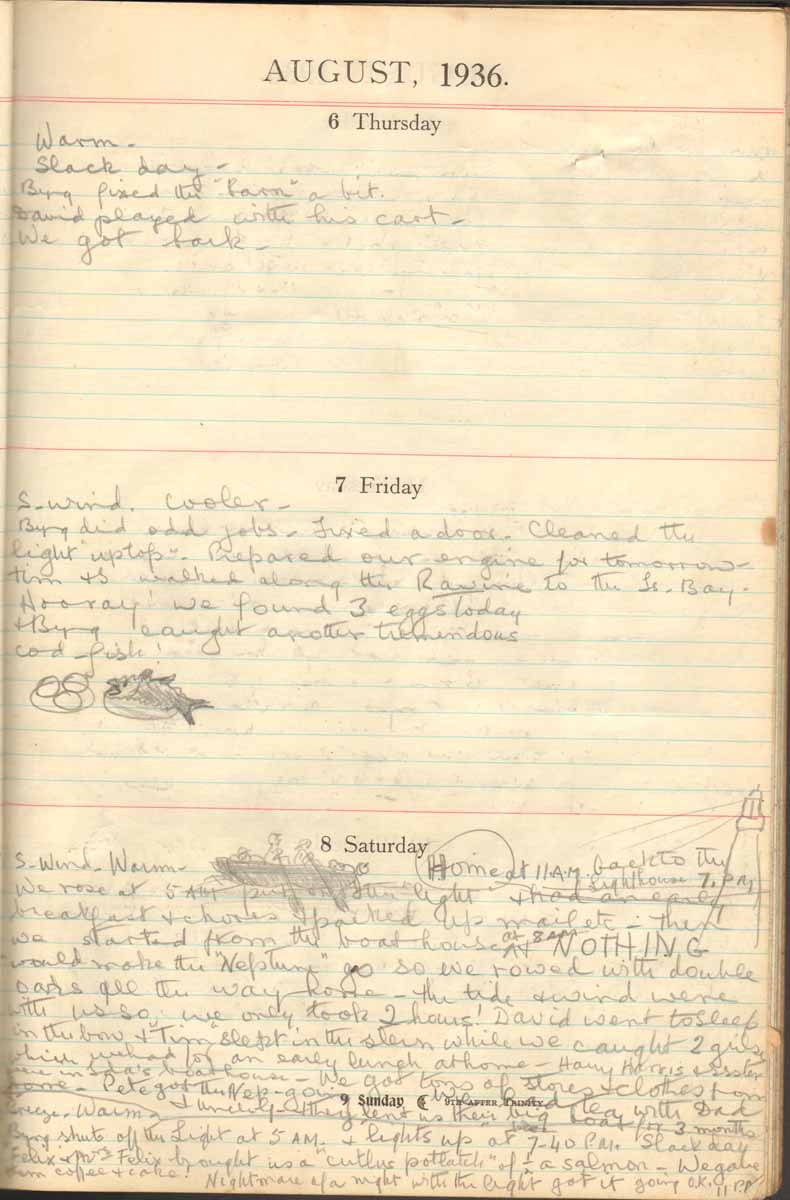 AUGUST, 1936.
6 Thursday
Warm -
Slack day -
Byng fixed the "barn" a bit.
David played with his cart -
We got bark -
7 Friday
S-wind. Cooler -
Byng did odd jobs - Fixed a door. Cleaned the
light "uptop". Prepared our engine for tomorrow -
Tim & I walked along the Ravine to the Ls. Bay.
Hooray! we found 3 eggs today
& Byng caught another tremendous
cod-fish!
8 Saturday
S-Wind. Warm - Home at 11 A.M. back to the
Lighthouse 7. PM
We rose at 5 AM put the "light" & had an early
breakfast & chores & packed up mail etc - then
we started from the boathouse at 8 AM NOTHING
would make the "Neptune" go so we rowed with double
oars all the way home - the tide & wind were
with us so, we only took 2 hours! David went to sleep
in the bow & "Tim" slept in the stern while we caught 2 girls
which we had for an early lunch at home - Harry Harris & sister
were in boathouse - We got tons of stores & clothes from
home - Pete got the Nep- going tea with Dad
9 Sunday 9TH AFTER TRINITY
& they lent us their big boat for 3 months
Breeze - Warm -
Byng shuts off the Light at 5 AM. & "lights up" at 7-40 P.M. Slack day
Felix & Mrs Felix brought us a "cultus potlatch" of a salmon - We gave
them coffee & cake. Nightmare of a night with the light got it going O.K. 11 PM